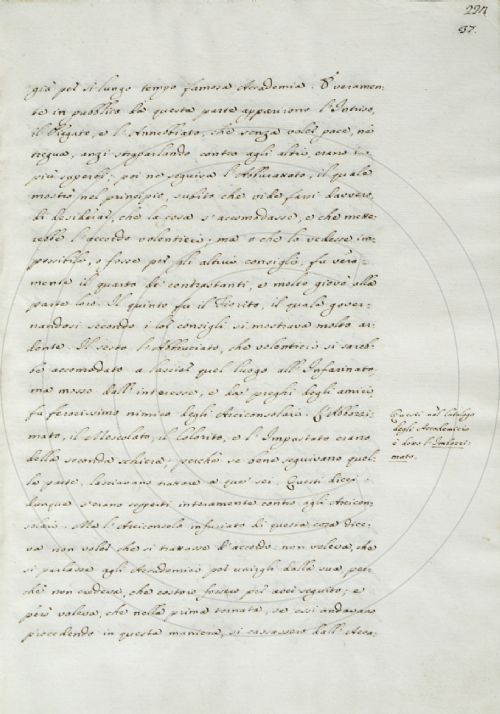 227
57.
già per sì lungo tempo famosa Accademia. E veramen-
te in pubblico da questa parte apparirono l'Intriso,
il Piegato, e l'Annebiato, che senza voler pace, nè
tregua, anzi straparlando contro agli altri, erano i
più superbi; poi ne seguiva l'Abburattato, il quale
mostrò nel principio, subito che vide farsi davvero,
di desiderar, che la cosa s'accomodasse, e che mette-
rebbe l'accordo volentieri, ma o che lo vedesse im-
possibile, o fosse per gli altrui consigli, fu vera-
mente il quarto di contrastanti, e molto giovò alla
parte loro. Il quinto fu il Fiorito, il quale gover-
nandosi secondo i lor consigli si mostrava molto ar-
dente. Il sesto l'Abbruciato, che volentieri si sareb-
be accomodato a lascior quel luogo all'Infarinato,
ma mosso dall'interesse, e da' prieghi degli amici
fu ferocissimo nimico degli Arciconsolari. L'
mato, il , il Colorito, e l'Impastato erano
della seconda schiera, perchè se bene seguivano quel-
la parte, lasciavano trarre a que' sei. Questi dieci
dunque s'erano scoperti interamente contro agli Arcicon-
solari. Ma l'Arciconsolo infuriato di questa cosa dice-
va non voler che si trattasse d'accordo: non voleva, che
si parlasse agli Accademici per unirgli dalla sua, per-
chè non credeva, che costoro fossero per aver seguito; e
però voleva, che nella prima tornata, se essi andavano
procedendo in questa maniera, si cassassero dall'Acca-
Questi nel Catalogo
degli Accademici
è detto l'Imbozzi-
mato.